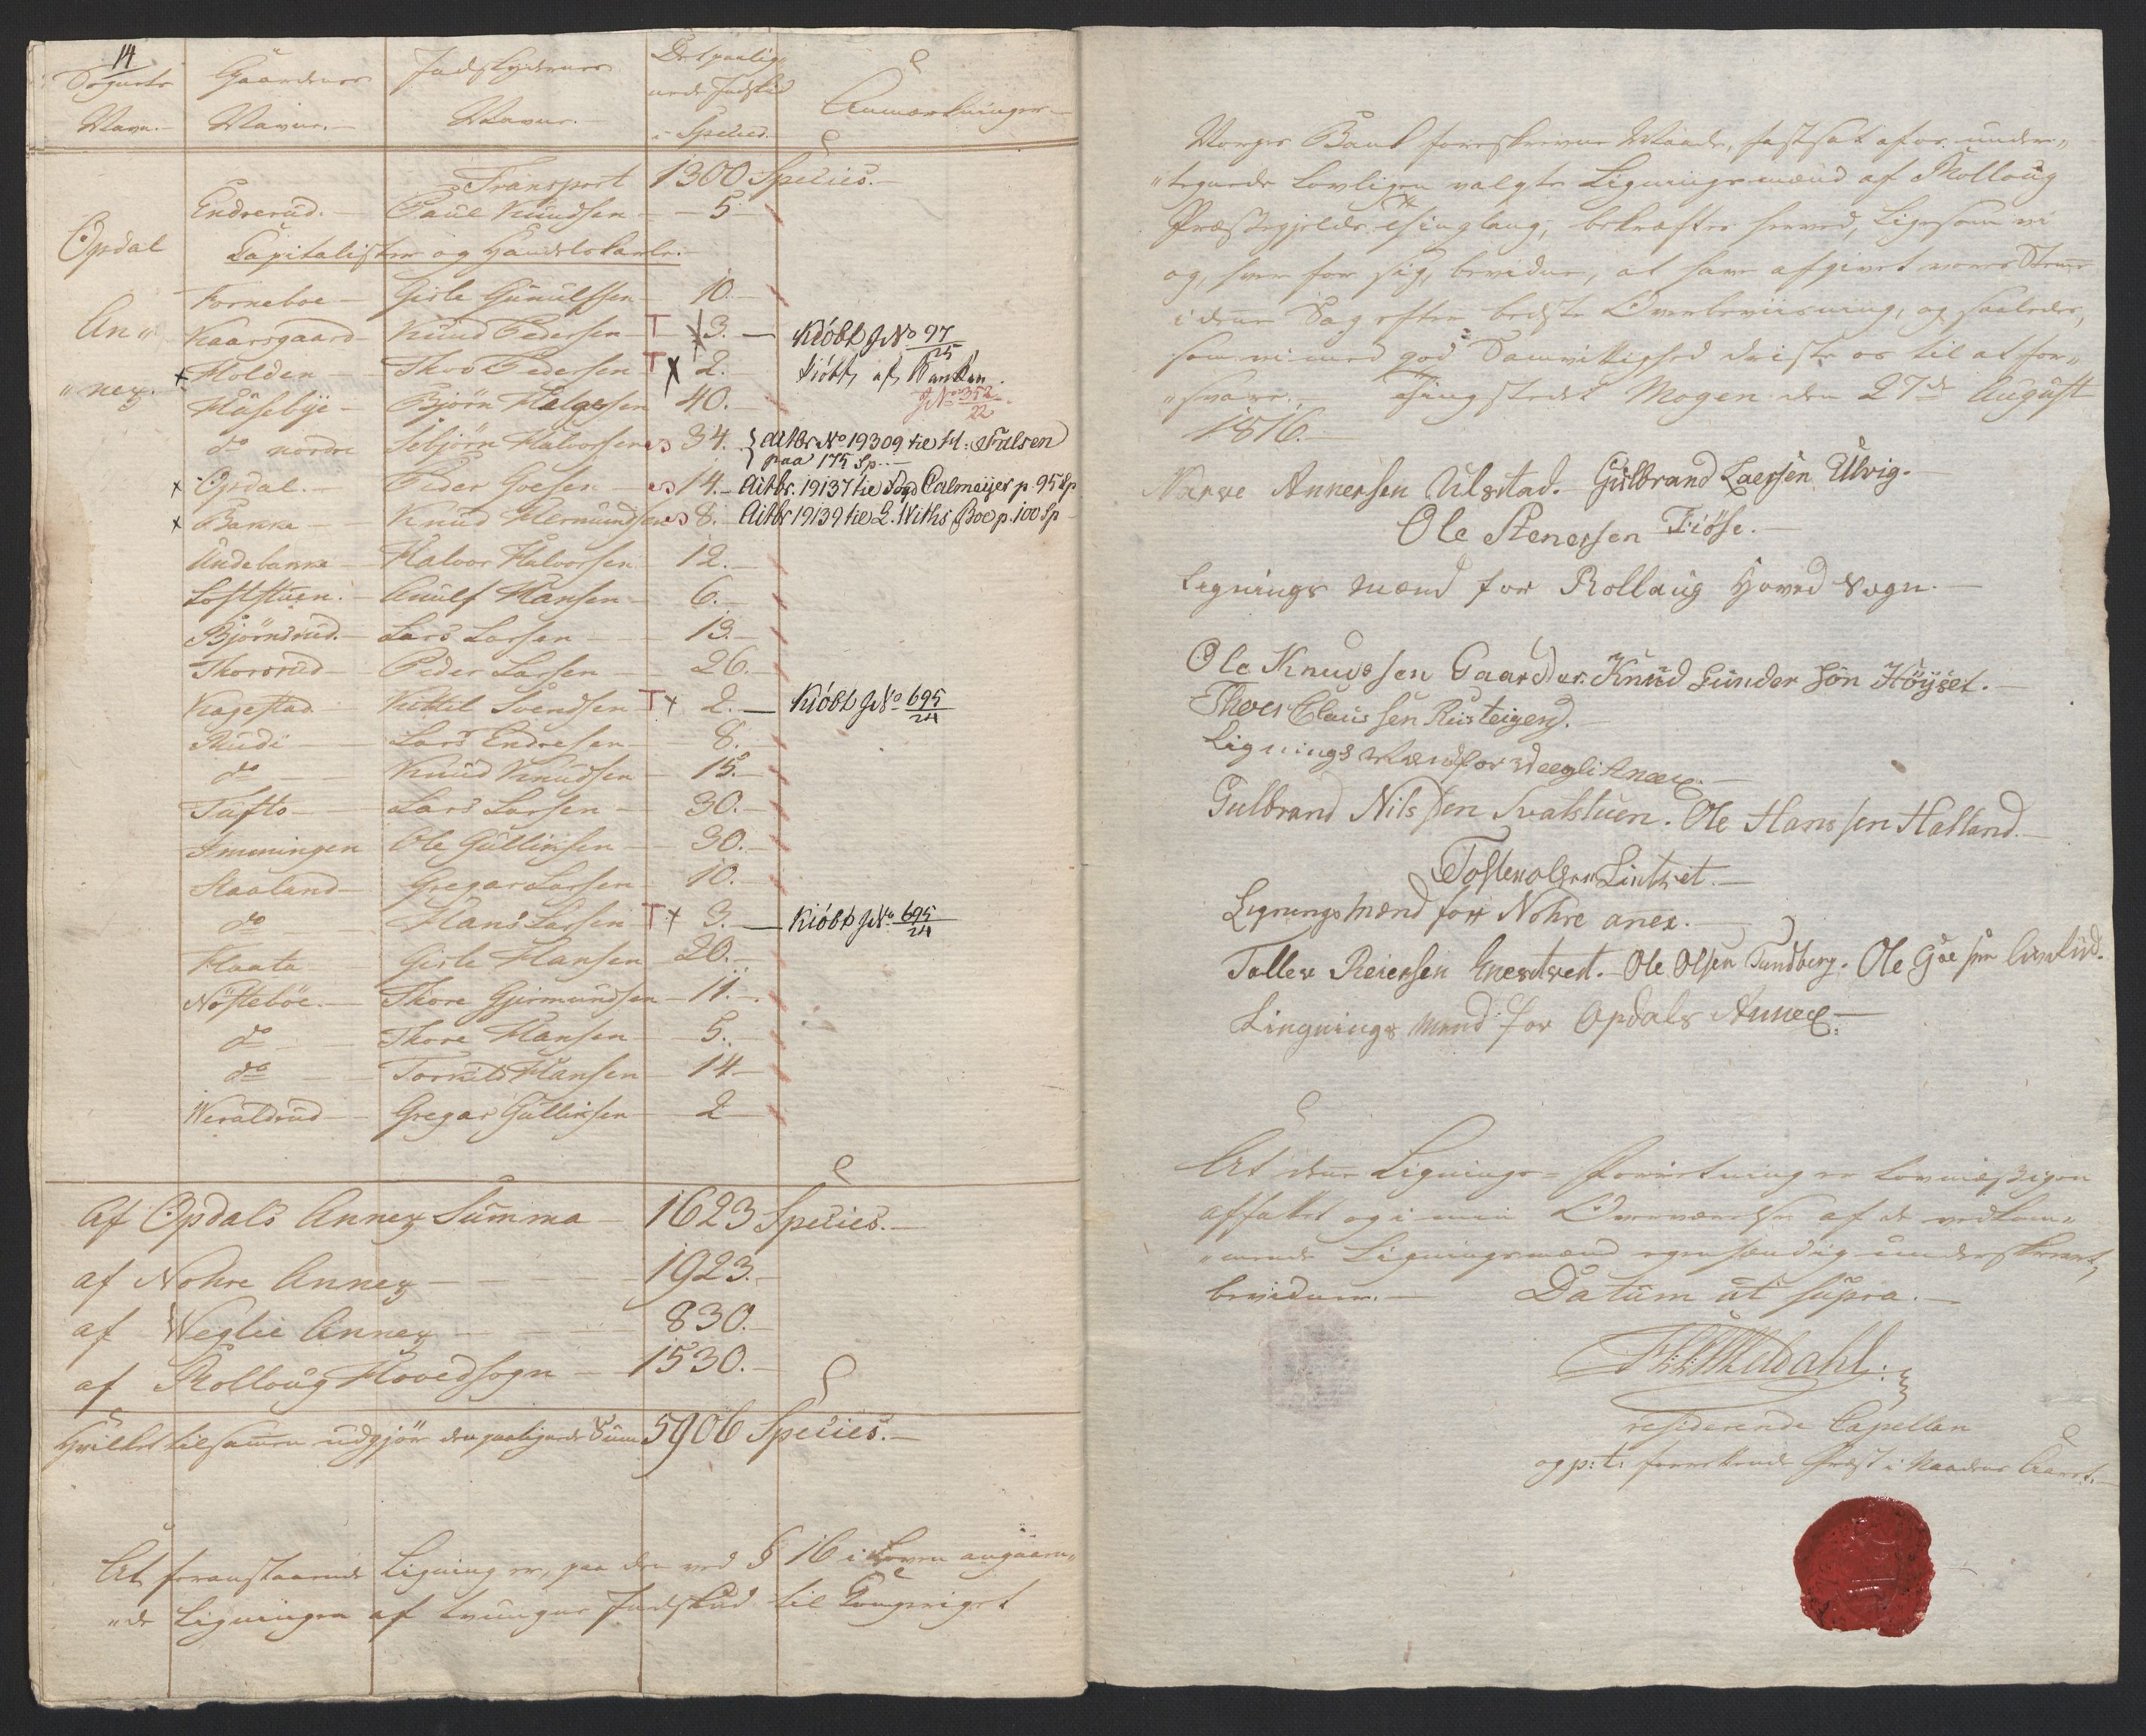 14
Sognets Navn.— Gaardenes Navne.— Indskydernes Navne.— Det paalignede Indskud i Species. Anmærkninger.—
Transport 1300 Species.—
Endrerud.— Paul Knudsen — 5
Opdal
Capitalister og Handelskarle.—
Forneboe — Gisle Gunulfsen — 10.—
An„
Kaarsgaard — Knud Pedersen — T x 3.— Kiöbt J No 97/25
x Holden — Thor Pedersen T x 2.— kiöbt af Banken
„nex.
Huseby — Björn Helgesen — 40.— J No 352/22
do nordre Sebjörn Halvorsen 34. { aitbr No 19309 til H: Falsen
paa 175 Sp.—
x Opdal.— Peder Goesen — 14.— Aitbr. 19137 til Fogd Calmeijer p. 95 Sp
x Bakke — Knud Hermundsen 8.— Aitbr 19139 til L. Withs Boe p. 100 Sp
Undebakke — Halvor Halvorsen — 12.—
Loftstuen.— Anulf Hansen — 6.—
Björndrud.— Lars Larsen — 13.—
Thorsrud — Peder Larsen — 26.—
Kagestad — Kittil Svendsen — T x 2.— Kiöbt J No 695/24
Rudi — Lars Endresen — 8.—
do — Knud Knudsen — 15.—
Tufto — Lars Larsen — 30.—
Immingen Ole Gullixsen — 30.—
Haaland — Gregar Larsen — 10.—
do — Hans Larsen T x 3.— Kiöbt J No 695/24
Flaata — Gisle Hansen 20.—
Nösteböe.— Thore Gjermundsen — 11.—
do — Thore Hansen — 5.—
do — Torkild Hansen — 14
Weraldrud — Gregar Gullixsen — 2
Af Opdals Annex Summa — 1623 Species.—
af Nohre Annex — 1923.—
af Weglie Annex — 830.—
af Rolloug Hovedsogn — 1530.—
Hvilket tilsamen udgjör den paalignede Sum 5906 Species.—
At foranstaaende Ligning er, paa den ved § 16 i Loven angaaen„
„de Ligningen af tvungne Indskud til Kongeriget
Norges Bank foreskrevne Maade, fastsat af os under„
„tegnede lovligen valgte Ligningsmænd af Rolloug
Præstegjelds Thinglaug, bekræftes herved, ligesom vi
og, hver for sig, bevidner, at have afgivet vores Stemme
i denne Sag efter bedste Overbeviisning, og saaledes,
som vi med god Samvittighed driste os til at for„
„svare.— Thingstedet Mogen den 27de August
1816.—
Narve Annersen Ulstad.— Gulbrand Laersen Ulvig.—
Ole Stenersen Fiöse.—
Lignings mænd for Rollaug Hoved Sogn.—
Ole Knudssen Gaarder. Knud Gunder sön Höyset.—
Thoer Claussen Rusteigend.—
Lignings Mænd for Weegli Anex.—
Gulbrand Nilssen Svatstuen. Ole Hanssen Halland.—
Tosten olsen Lintvet.—
Lignings Mænd for Nohre anex.—
Tollev Reiersen Enerstvedt.— Ole Olsen Tundberg. Ole Goe sen
Lingnings Mænd for Opdals Annex.—
At denne Lignings-Forretning er lovmæssigen
affattet og i min Overværelse af de vedkom„
„mende Ligningsmænd egenhændig underskrevet,
bevidner.— Datum ut supra.—
residerende Capellan
og p:t: forrettende Præst i Naadens Aaret.—